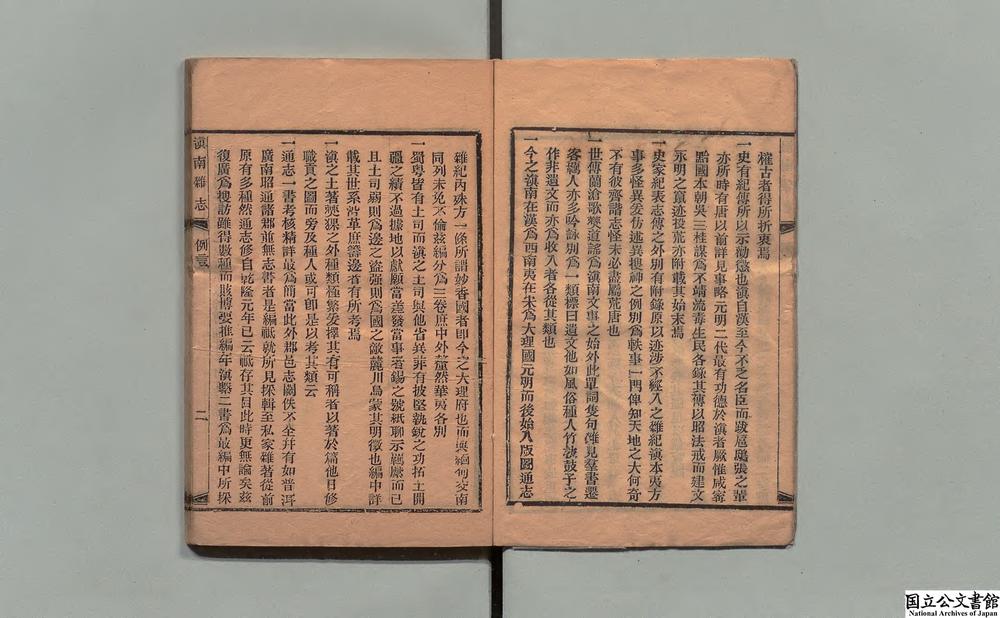 㩁古者得所折衷焉
一史有紀傳所以示勸懲也滇自漢至今不乏名臣而跋扈鴟張之輩
亦所時有唐以前詳見事略元明二代最有功德於滇者厥惟咸寧
黔國本朝吳三桂謀為不靖流毒生民各錄其傳以昭法戒而建文
永明之竄迹投荒亦附載其始末焉
一史家紀表志傳之外別有附錄原以迹涉不經入之雜紀滇本夷方
事多怪異爰仿述異搜神之例別為軼事一門俾知天地之大何奇
不有彼齊諧志怪未必盡屬荒唐也
一世傳蘭滄歌僰道謠為滇南文事之始外此單詞隻句雜見羣書遷
客羈人亦多吟詠別為一類標曰遺文他如風俗種人竹枝鼓子之
作非遺文而亦為收入者各從其類也
一今之滇南在漢為西南夷在宋為大理國元明而後始入版圖通志
雜紀內殊方一條所謂妙香國者即今之大理府也而與緬甸交南
同列未免不倫茲編分為三卷庶中外釐然華夷各別
一蜀粵皆有土司而滇之土司與他省異非有披堅執銳之功拓土開
疆之績不過據地以獻願當差發當事者錫之號紙聊示羈縻而已
且土司弱則為邊之盜强則為國之敵麓川烏蒙其明徵也編中詳
載其世系沿革庶籌邊者有所考焉
一滇之土著僰猓之外種類極繁爰擇其有可稱者以著於篇他日修
職貢之圖而旁及種人或可即是以考其類云
一通志一書考核精詳最為簡當此外郡邑志闕佚不全幷有如普洱
廣南昭通諸郡並無志書者是編祗就所見採輯至私家雜著從前
原有多種然通志修自乾隆元年已云祗存其目此時更無論矣茲
復廣為搜訪雖得數種而賅博要推編年滇繫二書為最編中所採
滇南雜志
例言
二
国立公文書館
National Archives of Japan